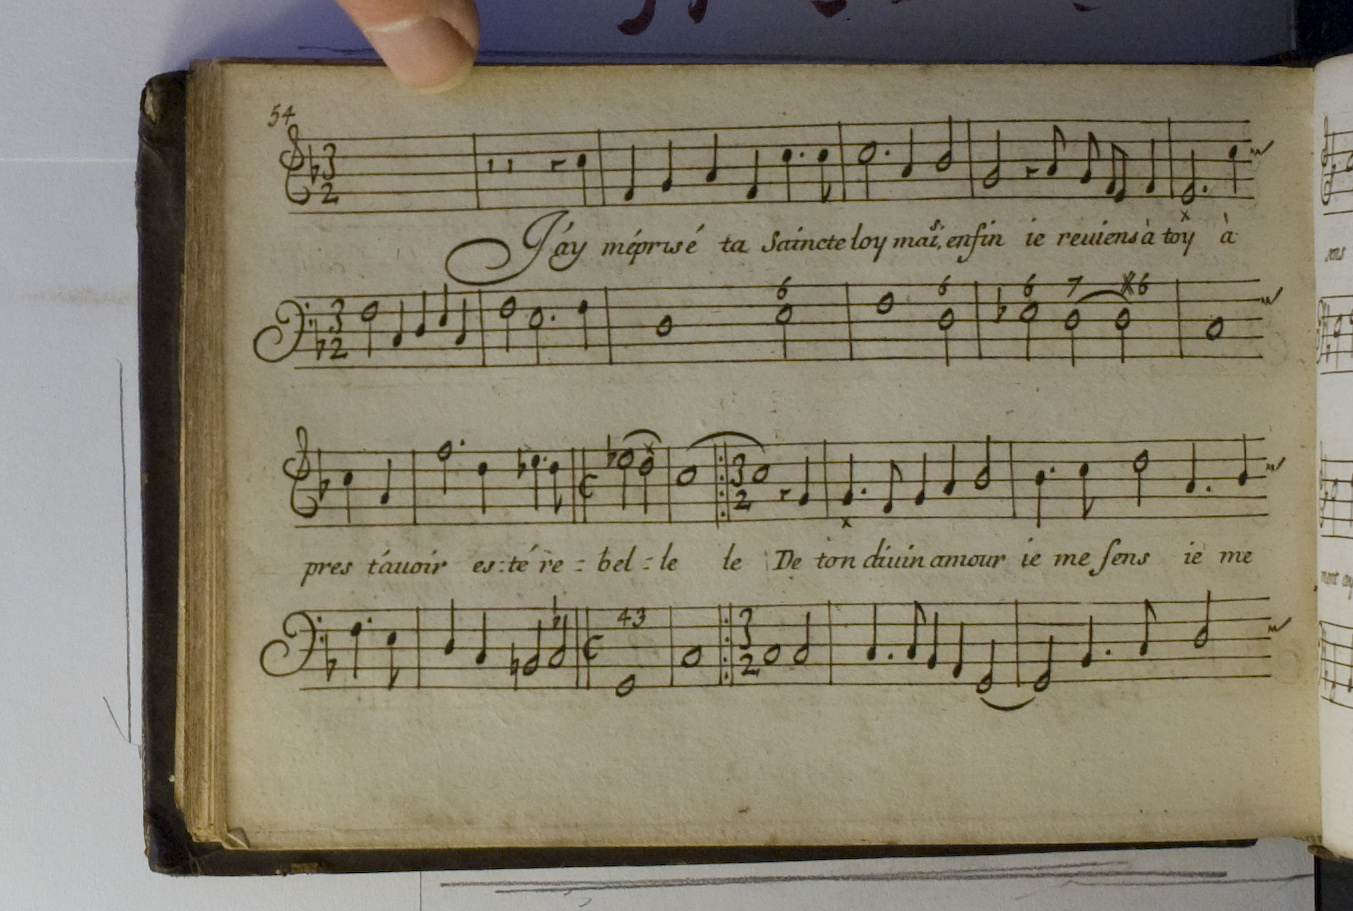 54
3
2
J'ay méprisé ta Saincte loy mais, enfin ie reuiens à toy à
6 6 6 7 6
3
2
pres t'auoir es:té re : bel : le le De ton diuin amour ie me sens ie me
3
2
43
3
2